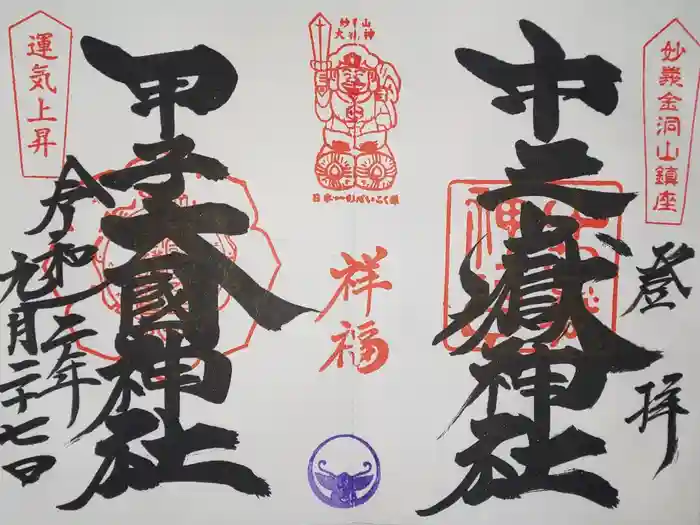 妙義金洞山鎮座
登拝
中之嶽神社
妙義山
大神
日本一のだいこく様
祥福
運気上昇
甲子大國神社
令和二年
九月二十七日